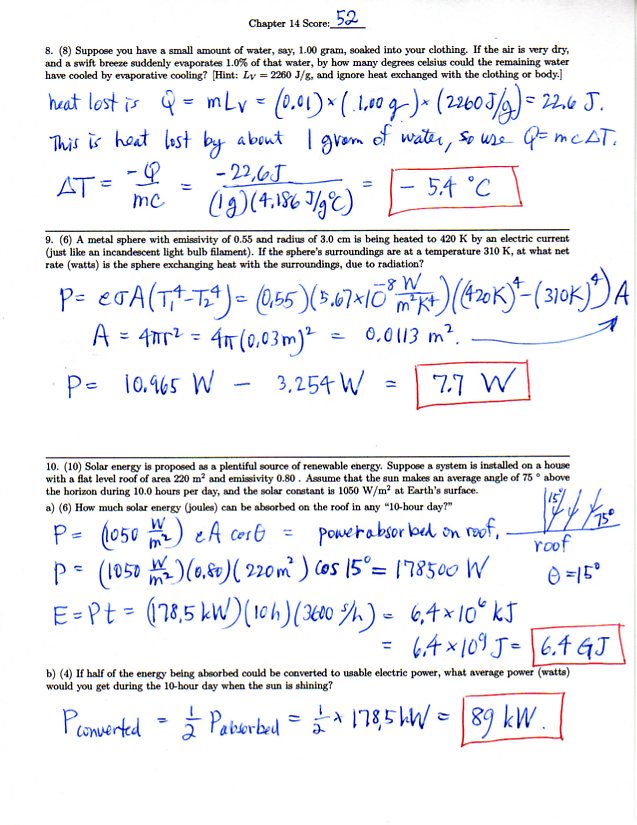 Chapter 14 Score: 52
8. (8) Suppose you have a small amount of water, say, 1.00 gram, soaked into your clothing. If the air is very dry,
and a swift breeze suddenly evaporates 1.0% of that water, by how many degrees celsius could the remaining water
have cooled by evaporative cooling? [Hint: Lv = 2260 J/g, and ignore heat exchanged with the clothing or body.]
heat lost is Q = mLv = (0.01)×(1.00 g)×(2260 J/g) = 22.6 J.
This is heat lost by about 1 gram of water, so use Q=mcΔT.
ΔT = -Q/mc = -22.6J/(1g)(4.186 J/g°C) = -5.4 °C
9. (6) A metal sphere with emissivity of 0.55 and radius of 3.0 cm is being heated to 420 K by an electric current
(just like an incandescent light bulb filament). If the sphere's surroundings are at a temperature 310 K, at what net
rate (watts) is the sphere exchanging heat with the surroundings, due to radiation?
P= eσA(T₁⁴-T₂⁴) = (0.55)(5.67×10⁻⁸ W/m²K⁴)((420K)⁴-(310K)⁴)A
A = 4πr² = 4π(0.03m)² = 0.0113 m².
P= 10.965 W - 3.254 W = 7.7 W
10. (10) Solar energy is proposed as a plentiful source of renewable energy. Suppose a system is installed on a house
with a flat level roof of area 220 m² and emissivity 0.80 . Assume that the sun makes an average angle of 75 ° above
the horizon during 10.0 hours per day, and the solar constant is 1050 W/m² at Earth's surface.
a) (6) How much solar energy (joules) can be absorbed on the roof in any "10-hour day?"
15° 75°
P= (1050 W/m²) eA cosθ = power absorbed on roof.
roof
P= (1050 W/m²)(0.80)(220m²) cos 15° = 178500 W
θ=15°
E=Pt = (178.5 kW)(10h)(3600 s/h) = 6.4×10⁶ kJ
= 6.4×10⁹ J = 6.4 GJ
b) (4) If half of the energy being absorbed could be converted to usable electric power, what average power (watts)
would you get during the 10-hour day when the sun is shining?
Pconverted = 1/2 Pabsorbed = 1/2 × 178.5 kW = 89 kW.